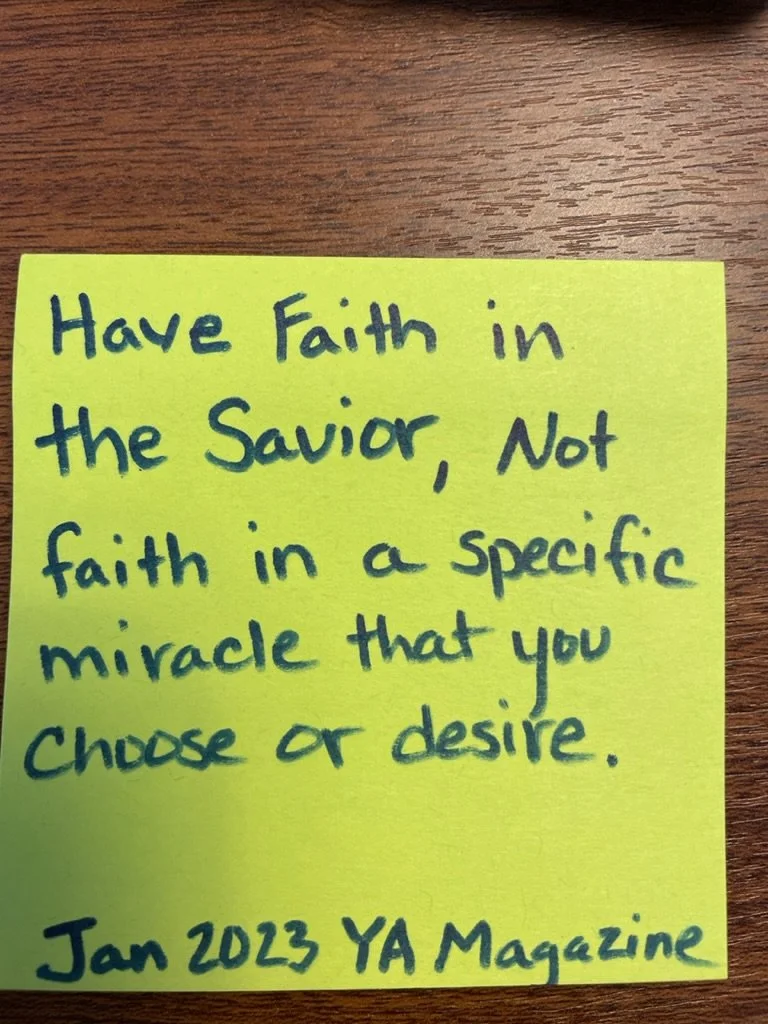 Have Faith in
the Savior, Not
faith in a specific
miracle that you
choose or desire.
Jan 2023 YA Magazine